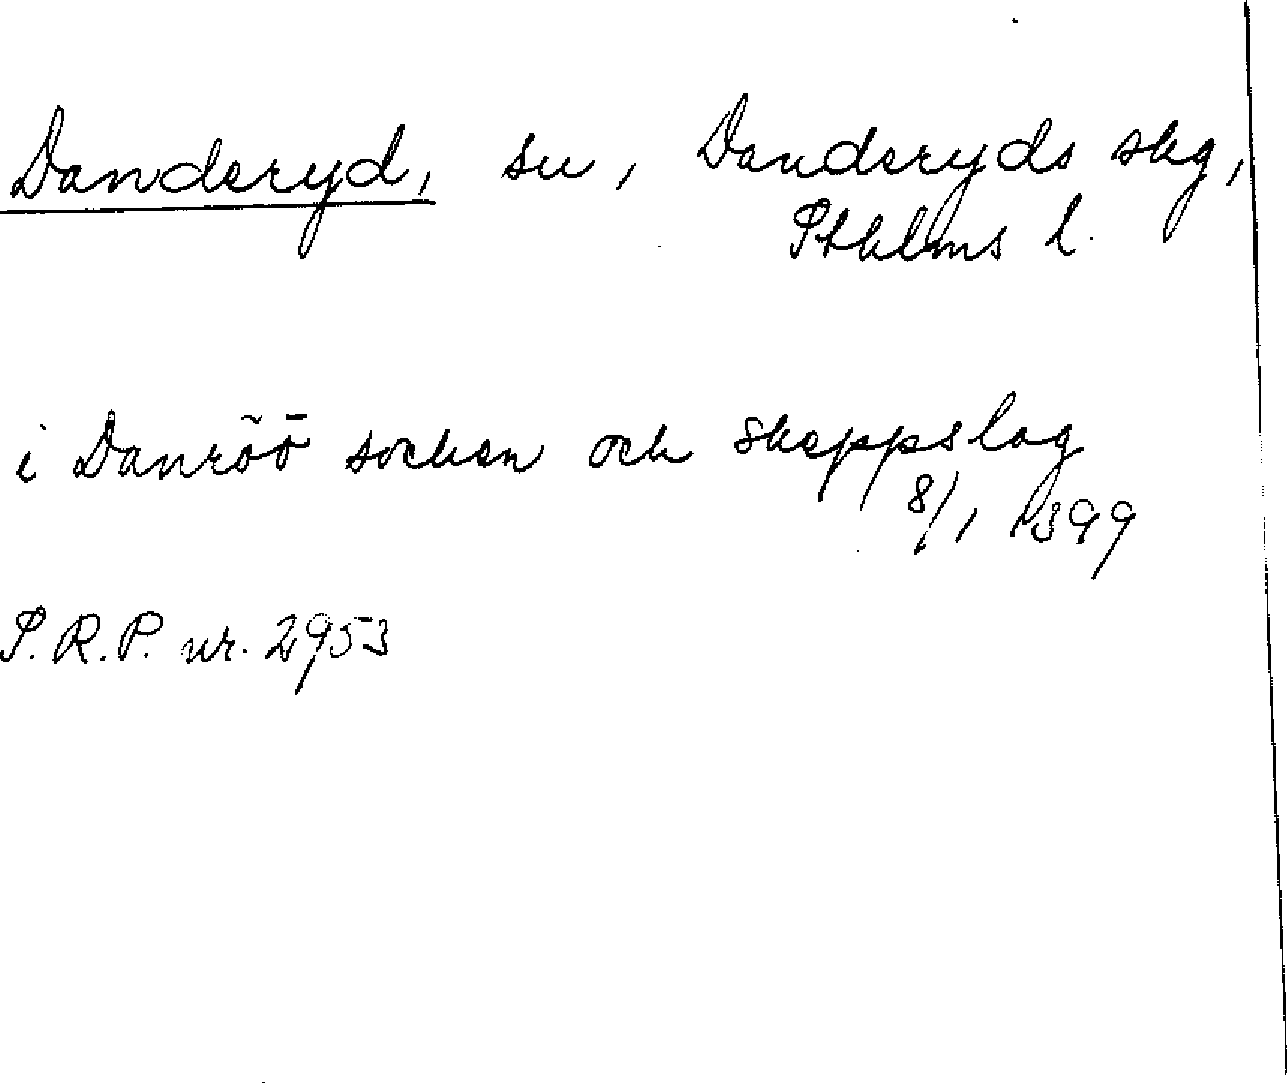 Danderyd, sn, Danderyds skg,
Sthlms l.
i Danröö socken och skeppslag
8/1 1399
S.R.P. nr. 2953